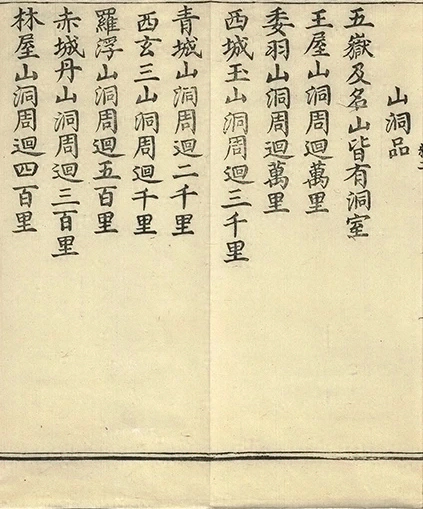 山洞品
五嶽及名山皆有洞室
王屋山洞周迴萬里
委羽山洞周迴萬里
西城玉山洞周迴三千里
青城山洞周迴二千里
西玄三山洞周迴千里
羅浮山洞周迴五百里
赤城丹山洞周迴三百里
林屋山洞周迴四百里